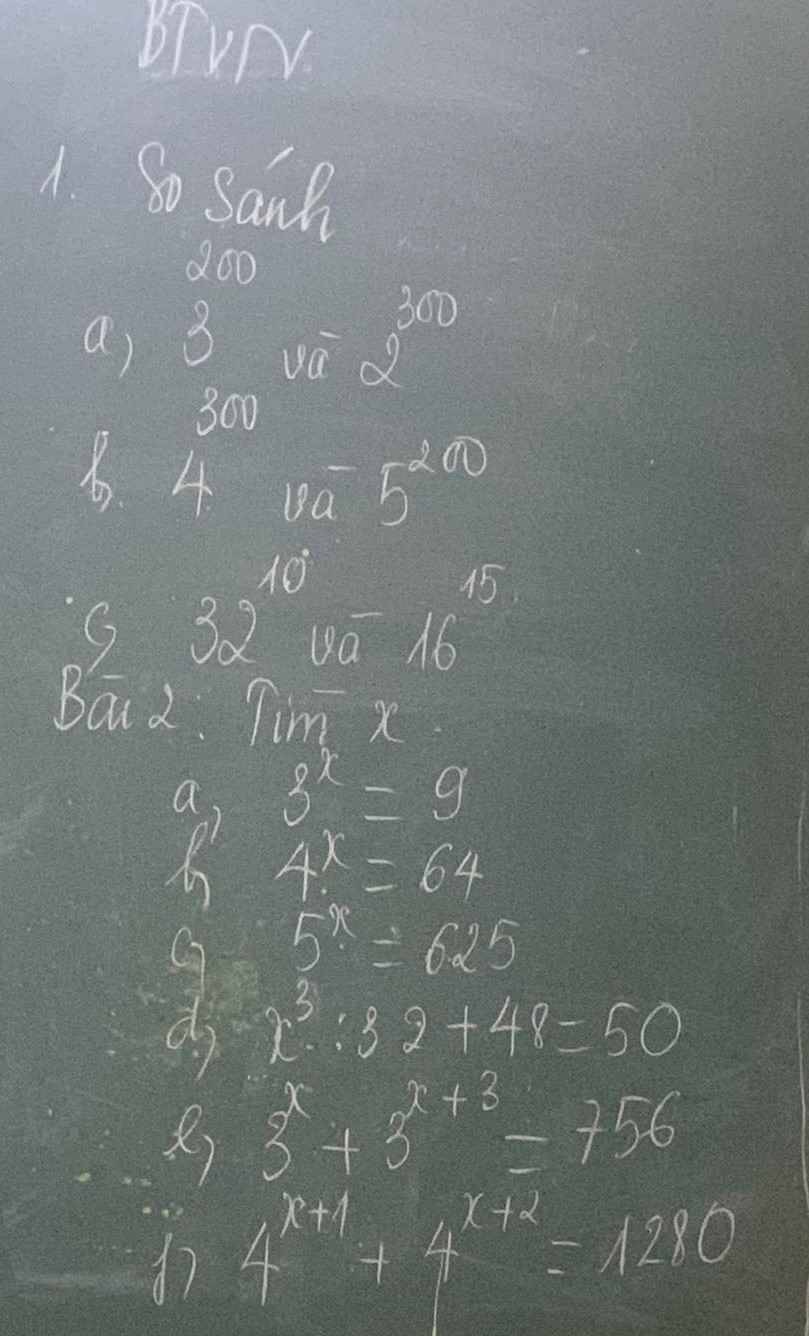 BTVN
1. So Sánh
a, 3²⁰⁰ và 2³⁰⁰
b. 4³⁰⁰ và 5²⁰⁰
c, 32¹⁰ và 16¹⁵
Bài 2: Tìm x
a, 3ˣ = 9
b, 4ˣ = 64
c, 5ˣ = 625
d, x³ : 32 + 48 = 50
e, 3ˣ + 3ˣ⁺³ = 756
f, 4ˣ⁺¹ + 4ˣ⁺² = 1280